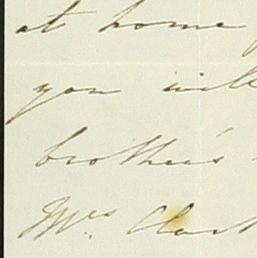 at home
you will
brother's
Mrs. Clark